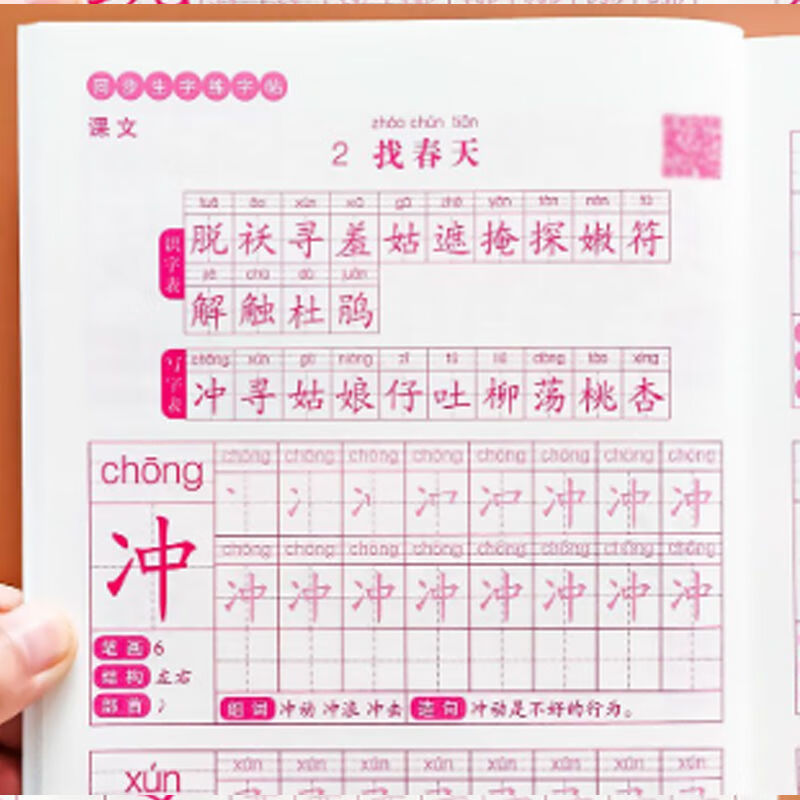 同步生字练字帖
课文
zhǎo chūn tiān
2 找春天
tuō ǎo xún xiū gū zhē yǎn tàn nèn fú
识字表 脱 袄 寻 羞 姑 遮 掩 探 嫩 符
jiě chù dù juān
解 触 杜 鹃
chōng xún gū niáng zǐ tǔ liǔ dàng táo xìng
写字表 冲 寻 姑 娘 仔 吐 柳 荡 桃 杏
chōng chōng chōng chōng chōng chōng chōng chōng chōng
冲 冲 冲 冲
chōng chōng chōng chōng chōng chōng chōng chōng
冲 冲 冲 冲 冲 冲 冲 冲 冲
笔画 6
结构 左右
部首 冫
组词 冲动 冲浪 冲击 造句 冲动是不好的行为。
xún xún xún xún xún xún xún xún xún